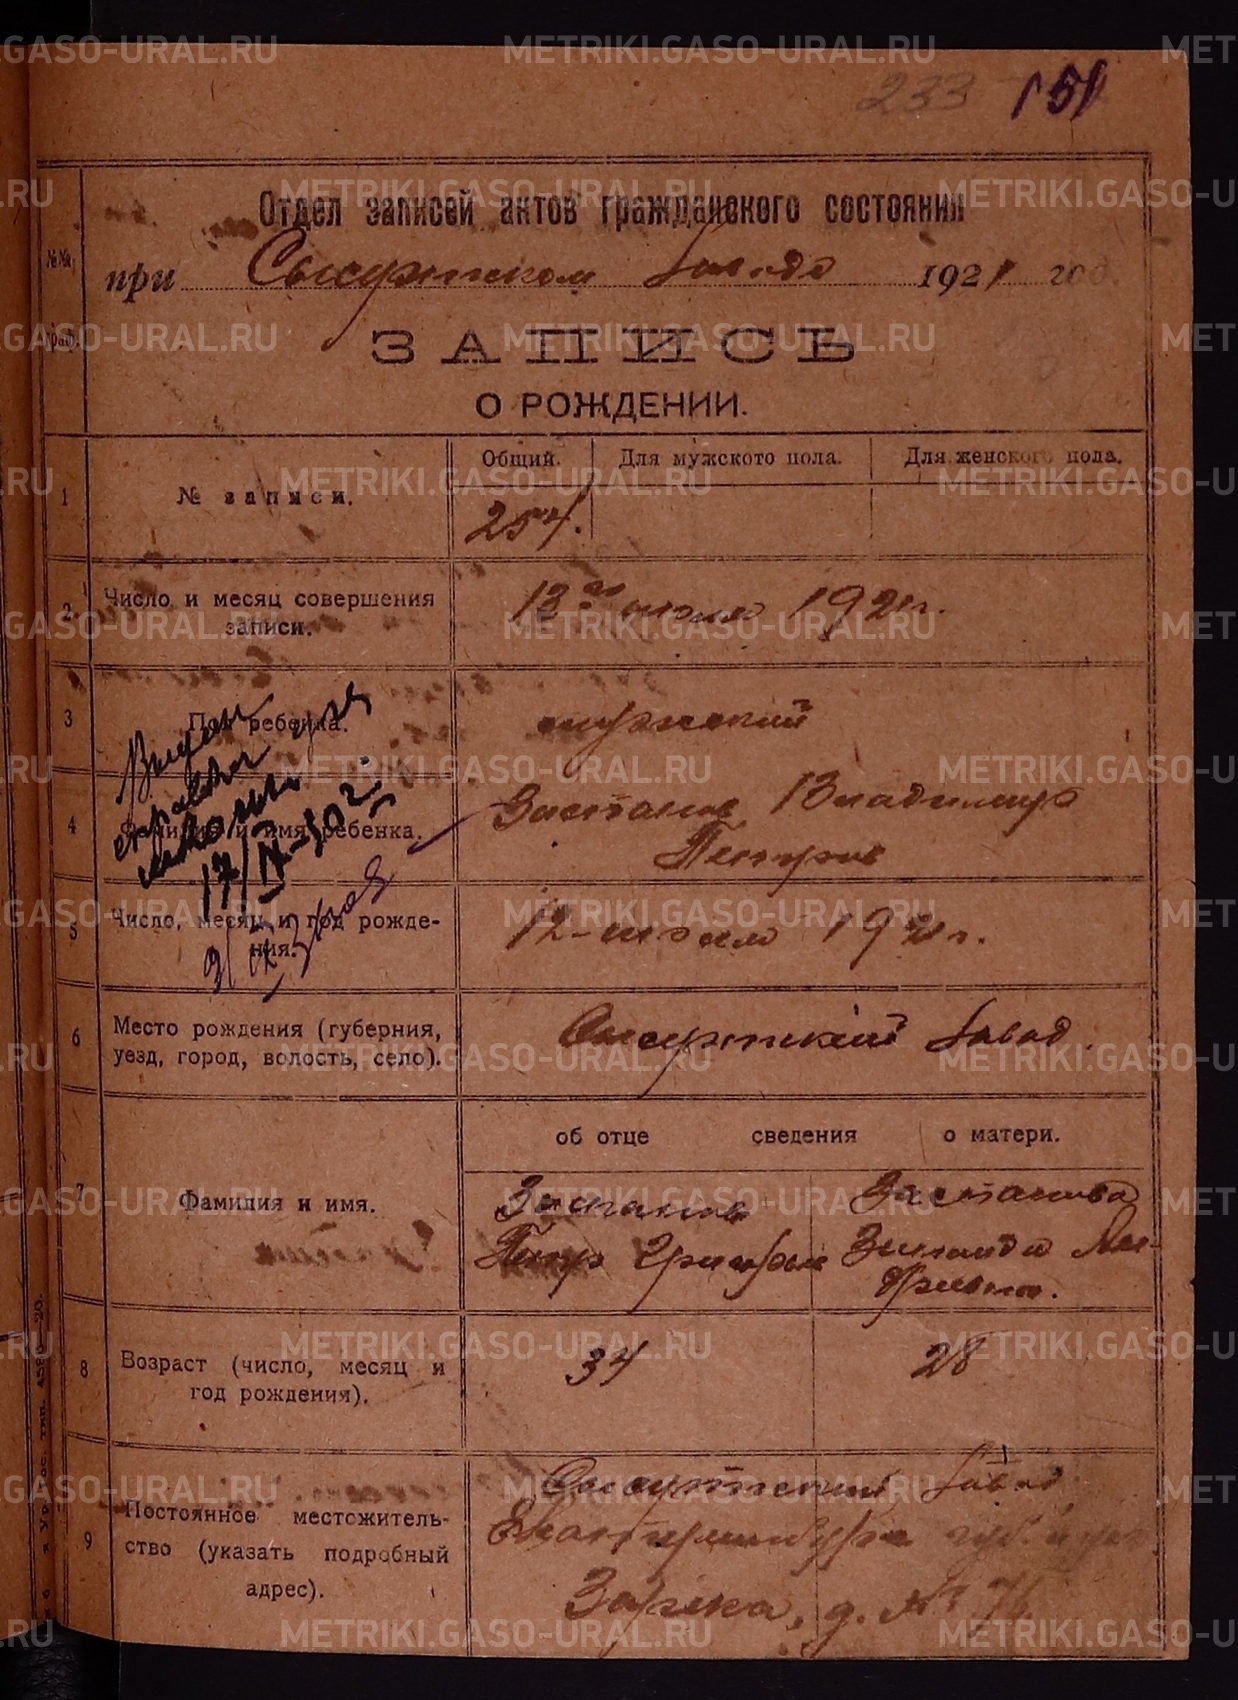 233 151
Отдел записей актов гражданского состояния
№№ граф.
при Сысертском заводе 1921 год.
ЗАПИСЬ
О РОЖДЕНИИ.
Общий. Для мужского пола. Для женского пола.
1 № записи. 254.
2 Число и месяц совершения записи. 13го июля 1921 г.
3 Пол ребенка. мужской
4 Фамилия и имя ребенка. Застанов Владимир
Петров
Выдан
17/IV-30 г.
5 Число, месяц и год рождения. 12-июля 1921 г.
6 Место рождения (губерния, уезд, город, волость, село). Сысертский завод.
об отце сведения о матери.
7 Фамилия и имя. Застанов Застанова
Петр Григорьев Зинаида
8 Возраст (число, месяц и год рождения). 34 28
9 Постоянное местожительство (указать подробный адрес). Сысертский завод
Екатеринбургс губ. и уез.
Заречка, д. № 76
METRIKI.GASO-URAL.RU